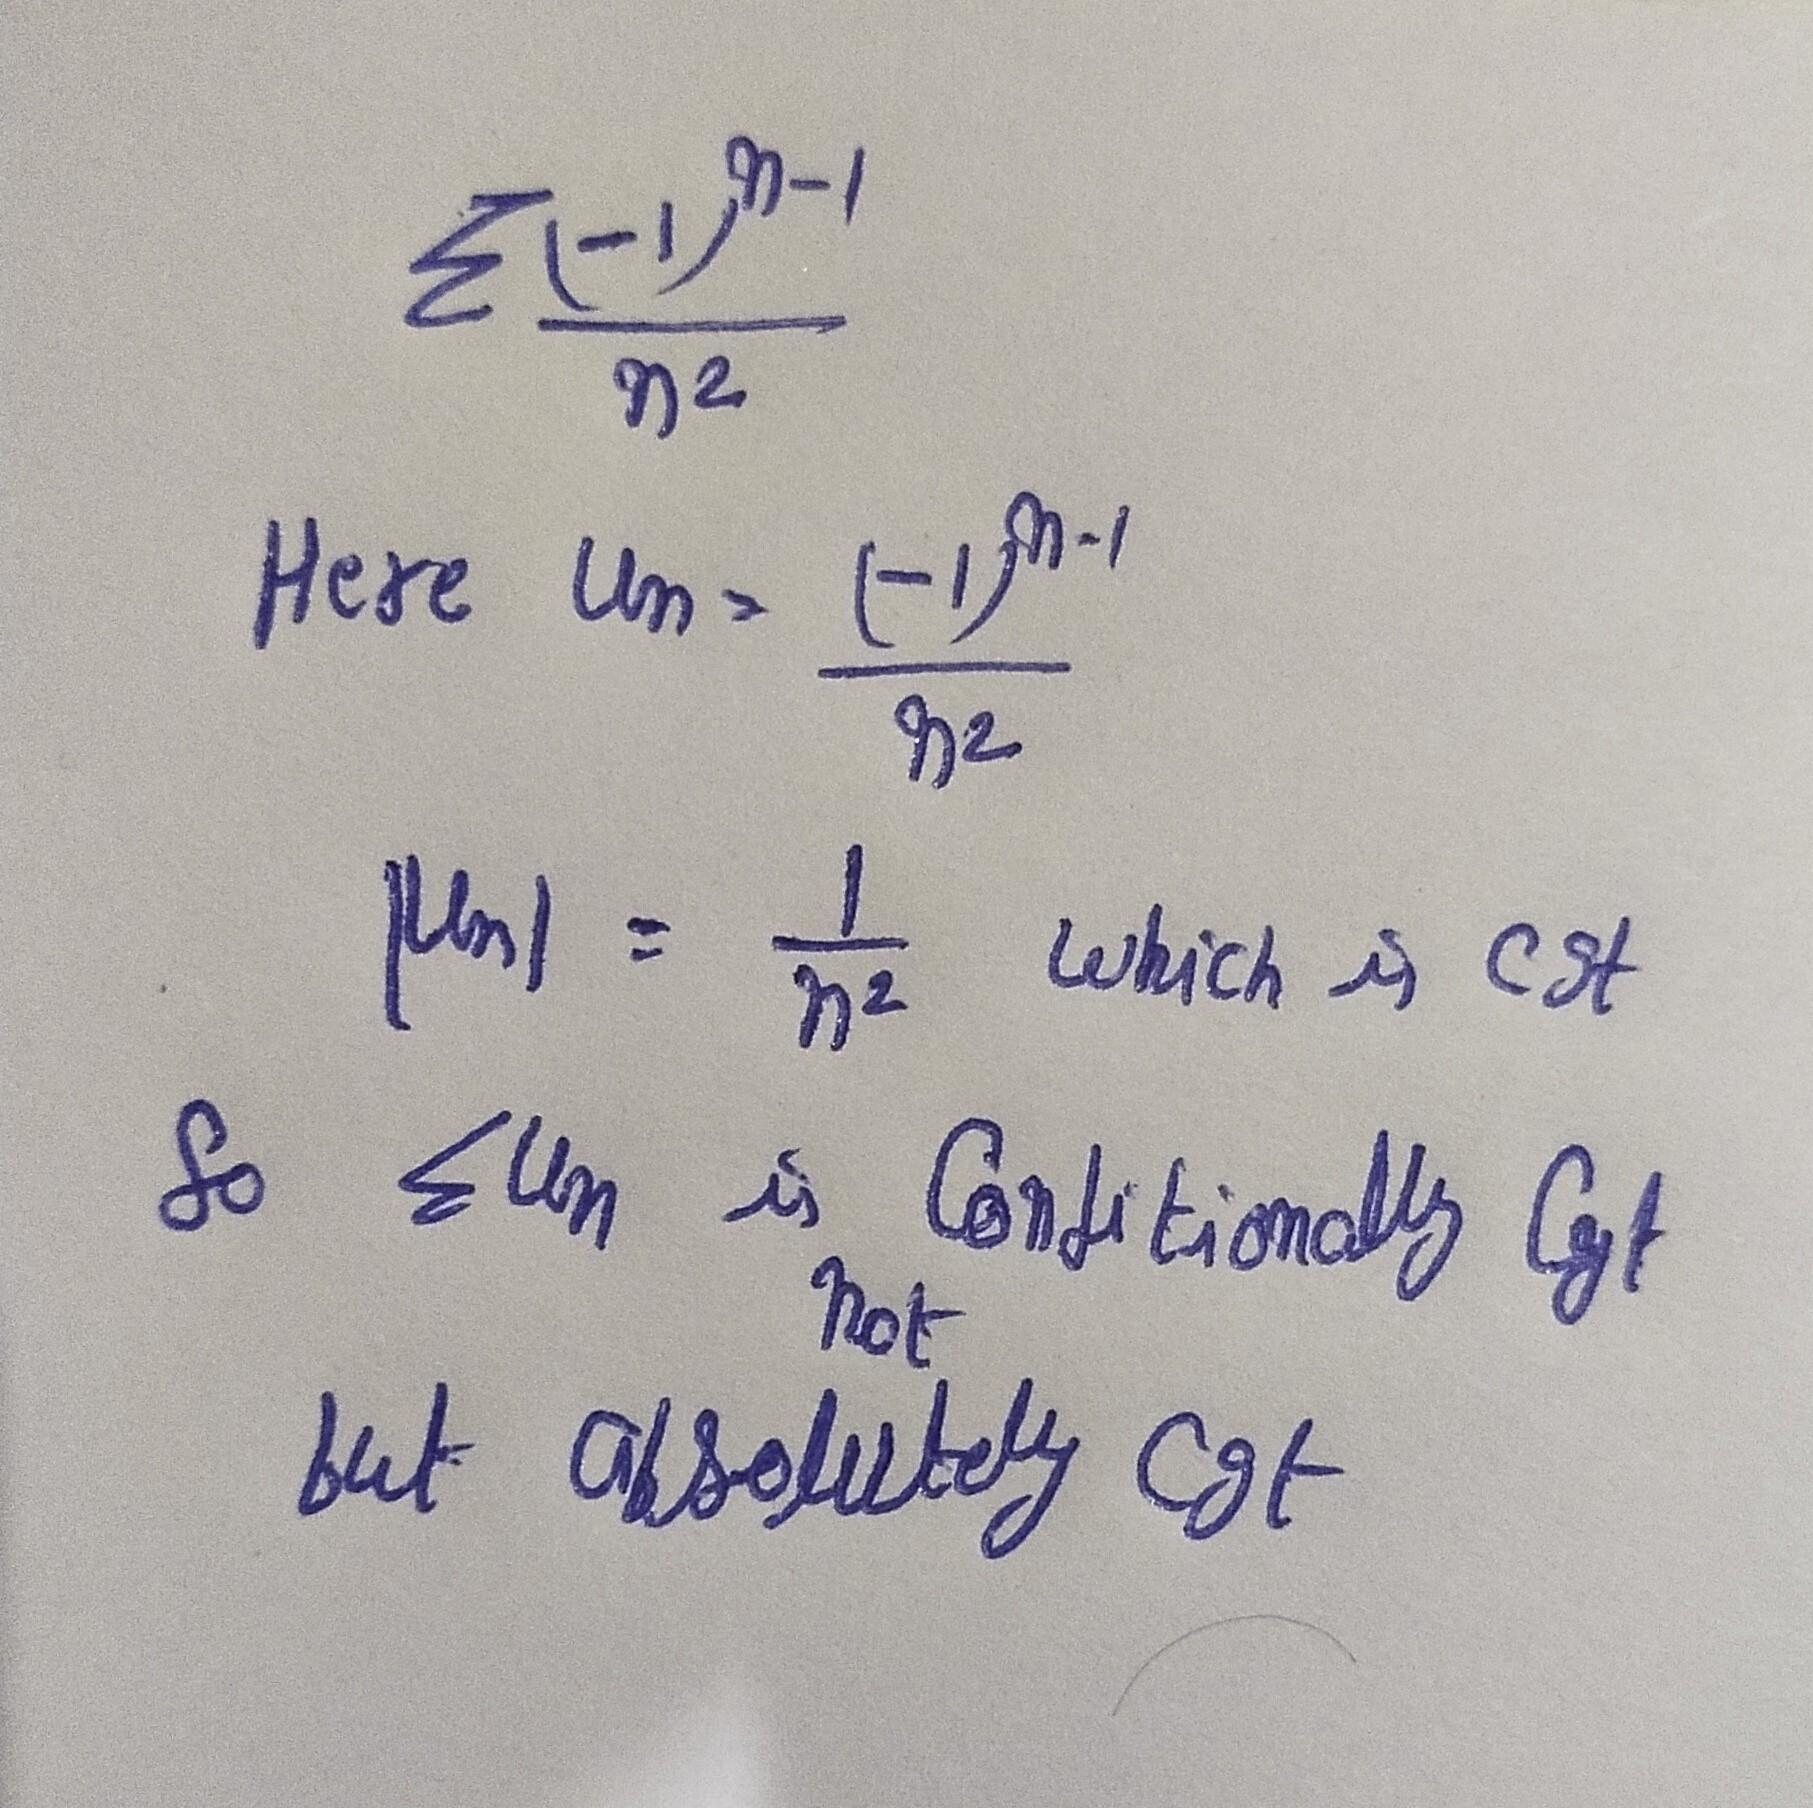 Σ (-1)^(n-1) / n²
Here Un = (-1)^(n-1) / n²
|Un| = 1 / n² which is cgt
So ΣUn is Conditionally Cgt
not
but absolutely Cgt